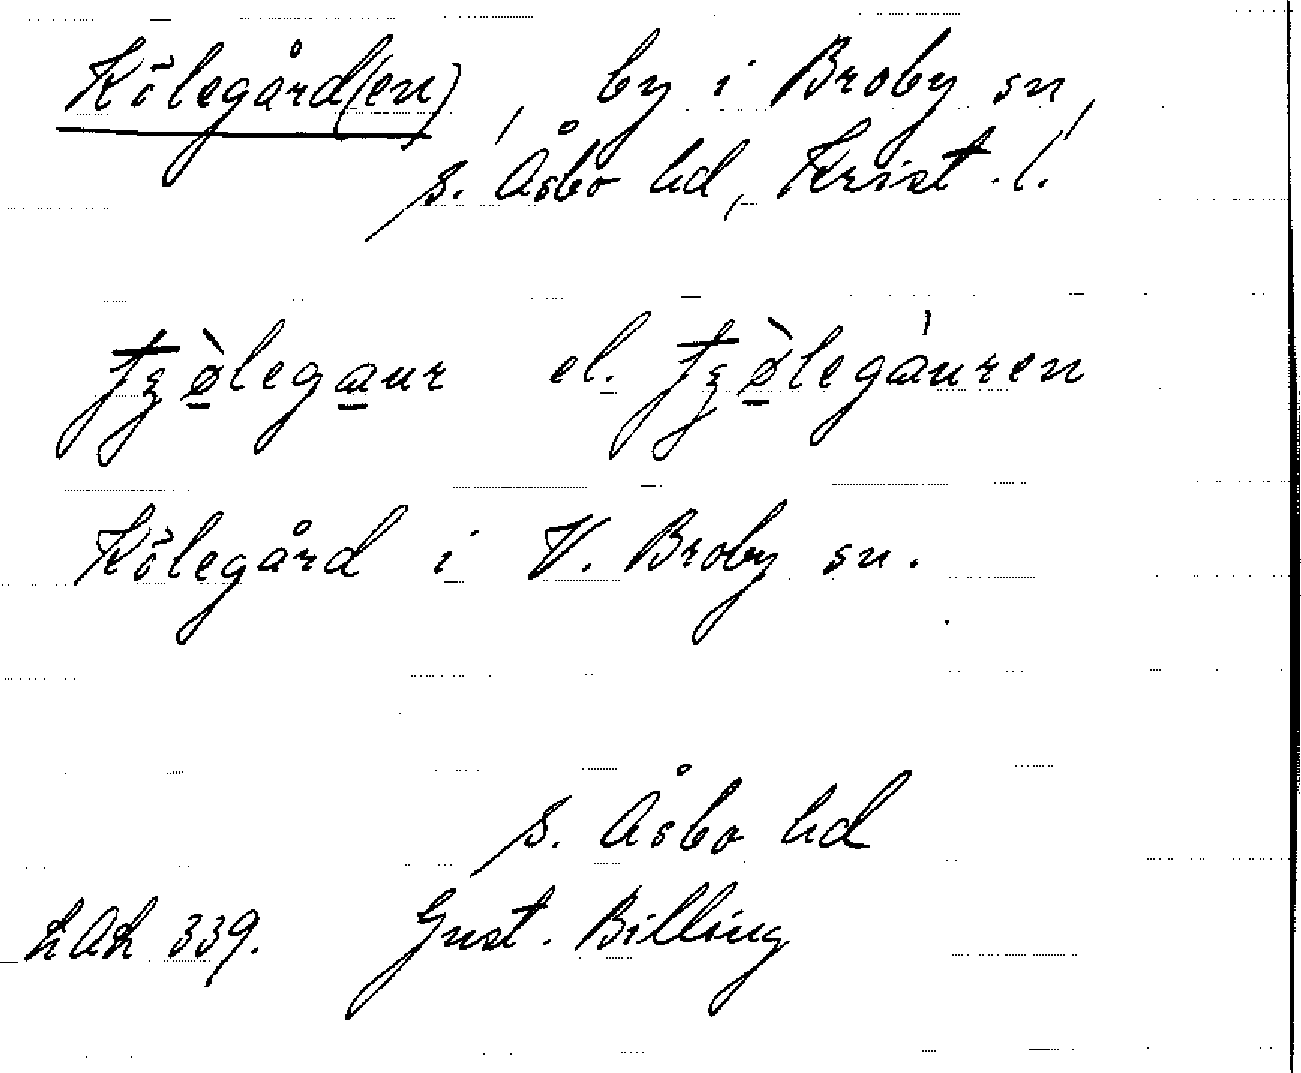 Kölegård(en), by i Broby sn,
S. Åsbo hd, Krist. l.
ƫʒø̀legaur el. ƫʒø̀legáuren
Kölegård i V. Broby sn.
S. Åsbo hd
LAL 339. Gust. Billing